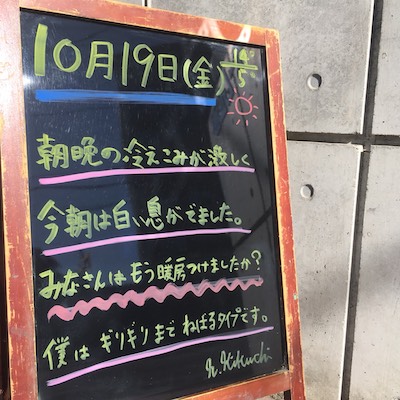 10月19日(金) 14°/5
朝晩の冷えこみが激しく
今朝は白い息がでました。
みなさんは もう暖房つけましたか?
僕は ギリギリまで ねばるタイプです。
N. Kikuchi